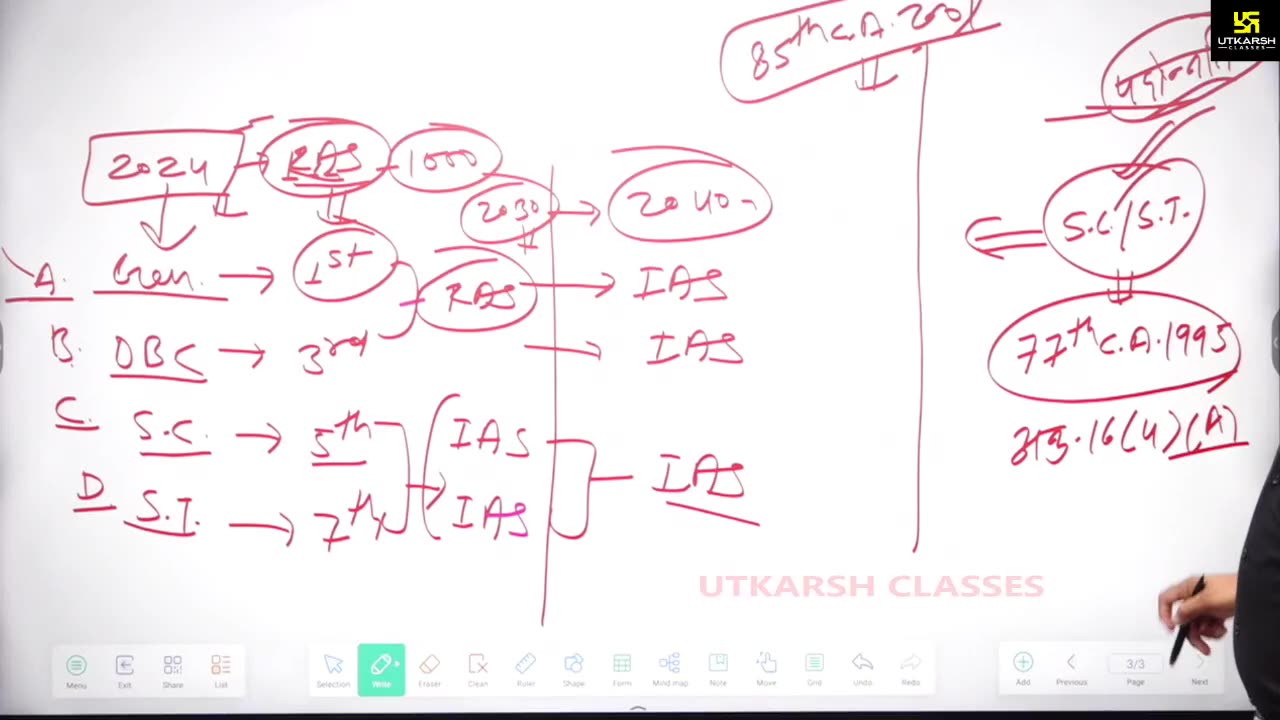 85th C.A. 2001
पदोन्नति
UTKARSH
CLASSES
2024 RAS 1000
2030 → 2040
S.C./S.T.
A. Gen. → 1st RAS → IAS
B. OBC → 3rd → IAS
77th C.A. 1995
C. S.C. → 5th IAS
अनु. 16(4)(A)
D. S.T. → 7th IAS IAS
UTKARSH CLASSES
Menu Exit Share List Selection Write Eraser Clean Ruler Shape Form Mind map Note Move Grid Undo Redo Add Previous 3/3 Page Next